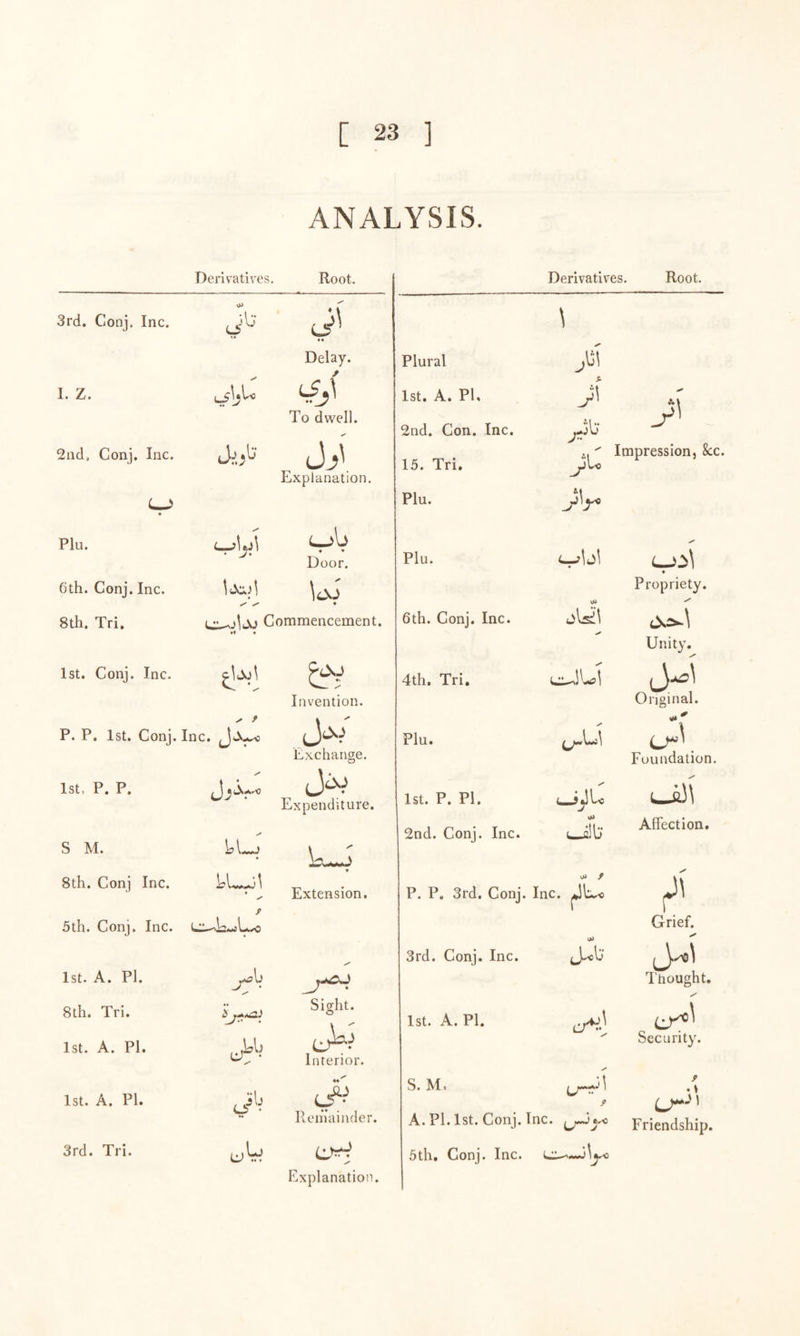 [ 23 ]
ANALYSIS.
Derivatives. Root.
3rd. Conj. Inc. تانّي اني
Delay.
I. Z. ماواي اوي
To dwell.
2nd, Conj. Inc. تاويل اول
Explanation.
ب
Plu. ابواب باب
Door.
6th. Conj. Inc. ابتدا بدا
8th. Tri. بدايت Commencement.
1st. Conj. Inc. ابداع بدع
Invention.
P. P. 1st. Conj. Inc. مبدل بدل
Exchange.
1st. P. P. مبذول بذل
Expenditure.
S M. بساط بسط
8th. Conj Inc. انبساط
Extension.
5th. Conj. Inc. مباسطت
1st. A. Pl. باصر بصر
8th. Tri. بصيرة Sight.
1st. A. Pl. باطن بطن
Interior.
1st. A. Pl. باقي بقي
Remainder.
3rd. Tri. بيان بين
Explanation.
Derivatives. Root.
ا
Plural اثار
1st. A. Pl. اثر اثر
2nd. Con. Inc. تاثير
15. Tri. ماثر Impression, &c.
Plu. مواثر
Plu. اداب ادب
Propriety.
6th. Conj. Inc. اتّحاد احد
Unity.
4th. Tri. اصالت اصل
Original.
Plu. اساس اسّ
Foundation.
1st. P. Pl. مالوف الف
2nd. Conj. Inc. تالّف Affection.
P. P. 3rd. Conj. Inc. متالّم الم
Grief.
3rd. Conj. Inc. تامّل امل
Thought.
1st. A. Pl. امن امن
Security.
S. M. انيس انس
A. Pl. 1st. Conj. Inc. مونس Friendship.
5th. Conj. Inc. موانست